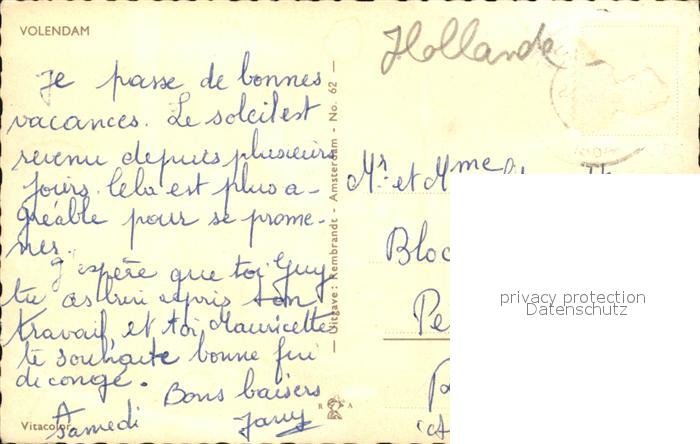 VOLENDAM
Hollande
Je passe de bonnes
vacances. Le soleil est
revenu depuis plusieurs
jours. Cela est plus a-
gréable pour se prome-
ner.
J'espère que toi Guy
tu as bien repris ton
travail, et toi Mauricette
te souhaite bonne fin
de congé.
Bons baisers
A Samedi
Vitacolor
Uitgave: Rembrandt - Amsterdam - No. 62
R A
Mr. et Mme
Bloc
Pe
privacy protection
Datenschutz